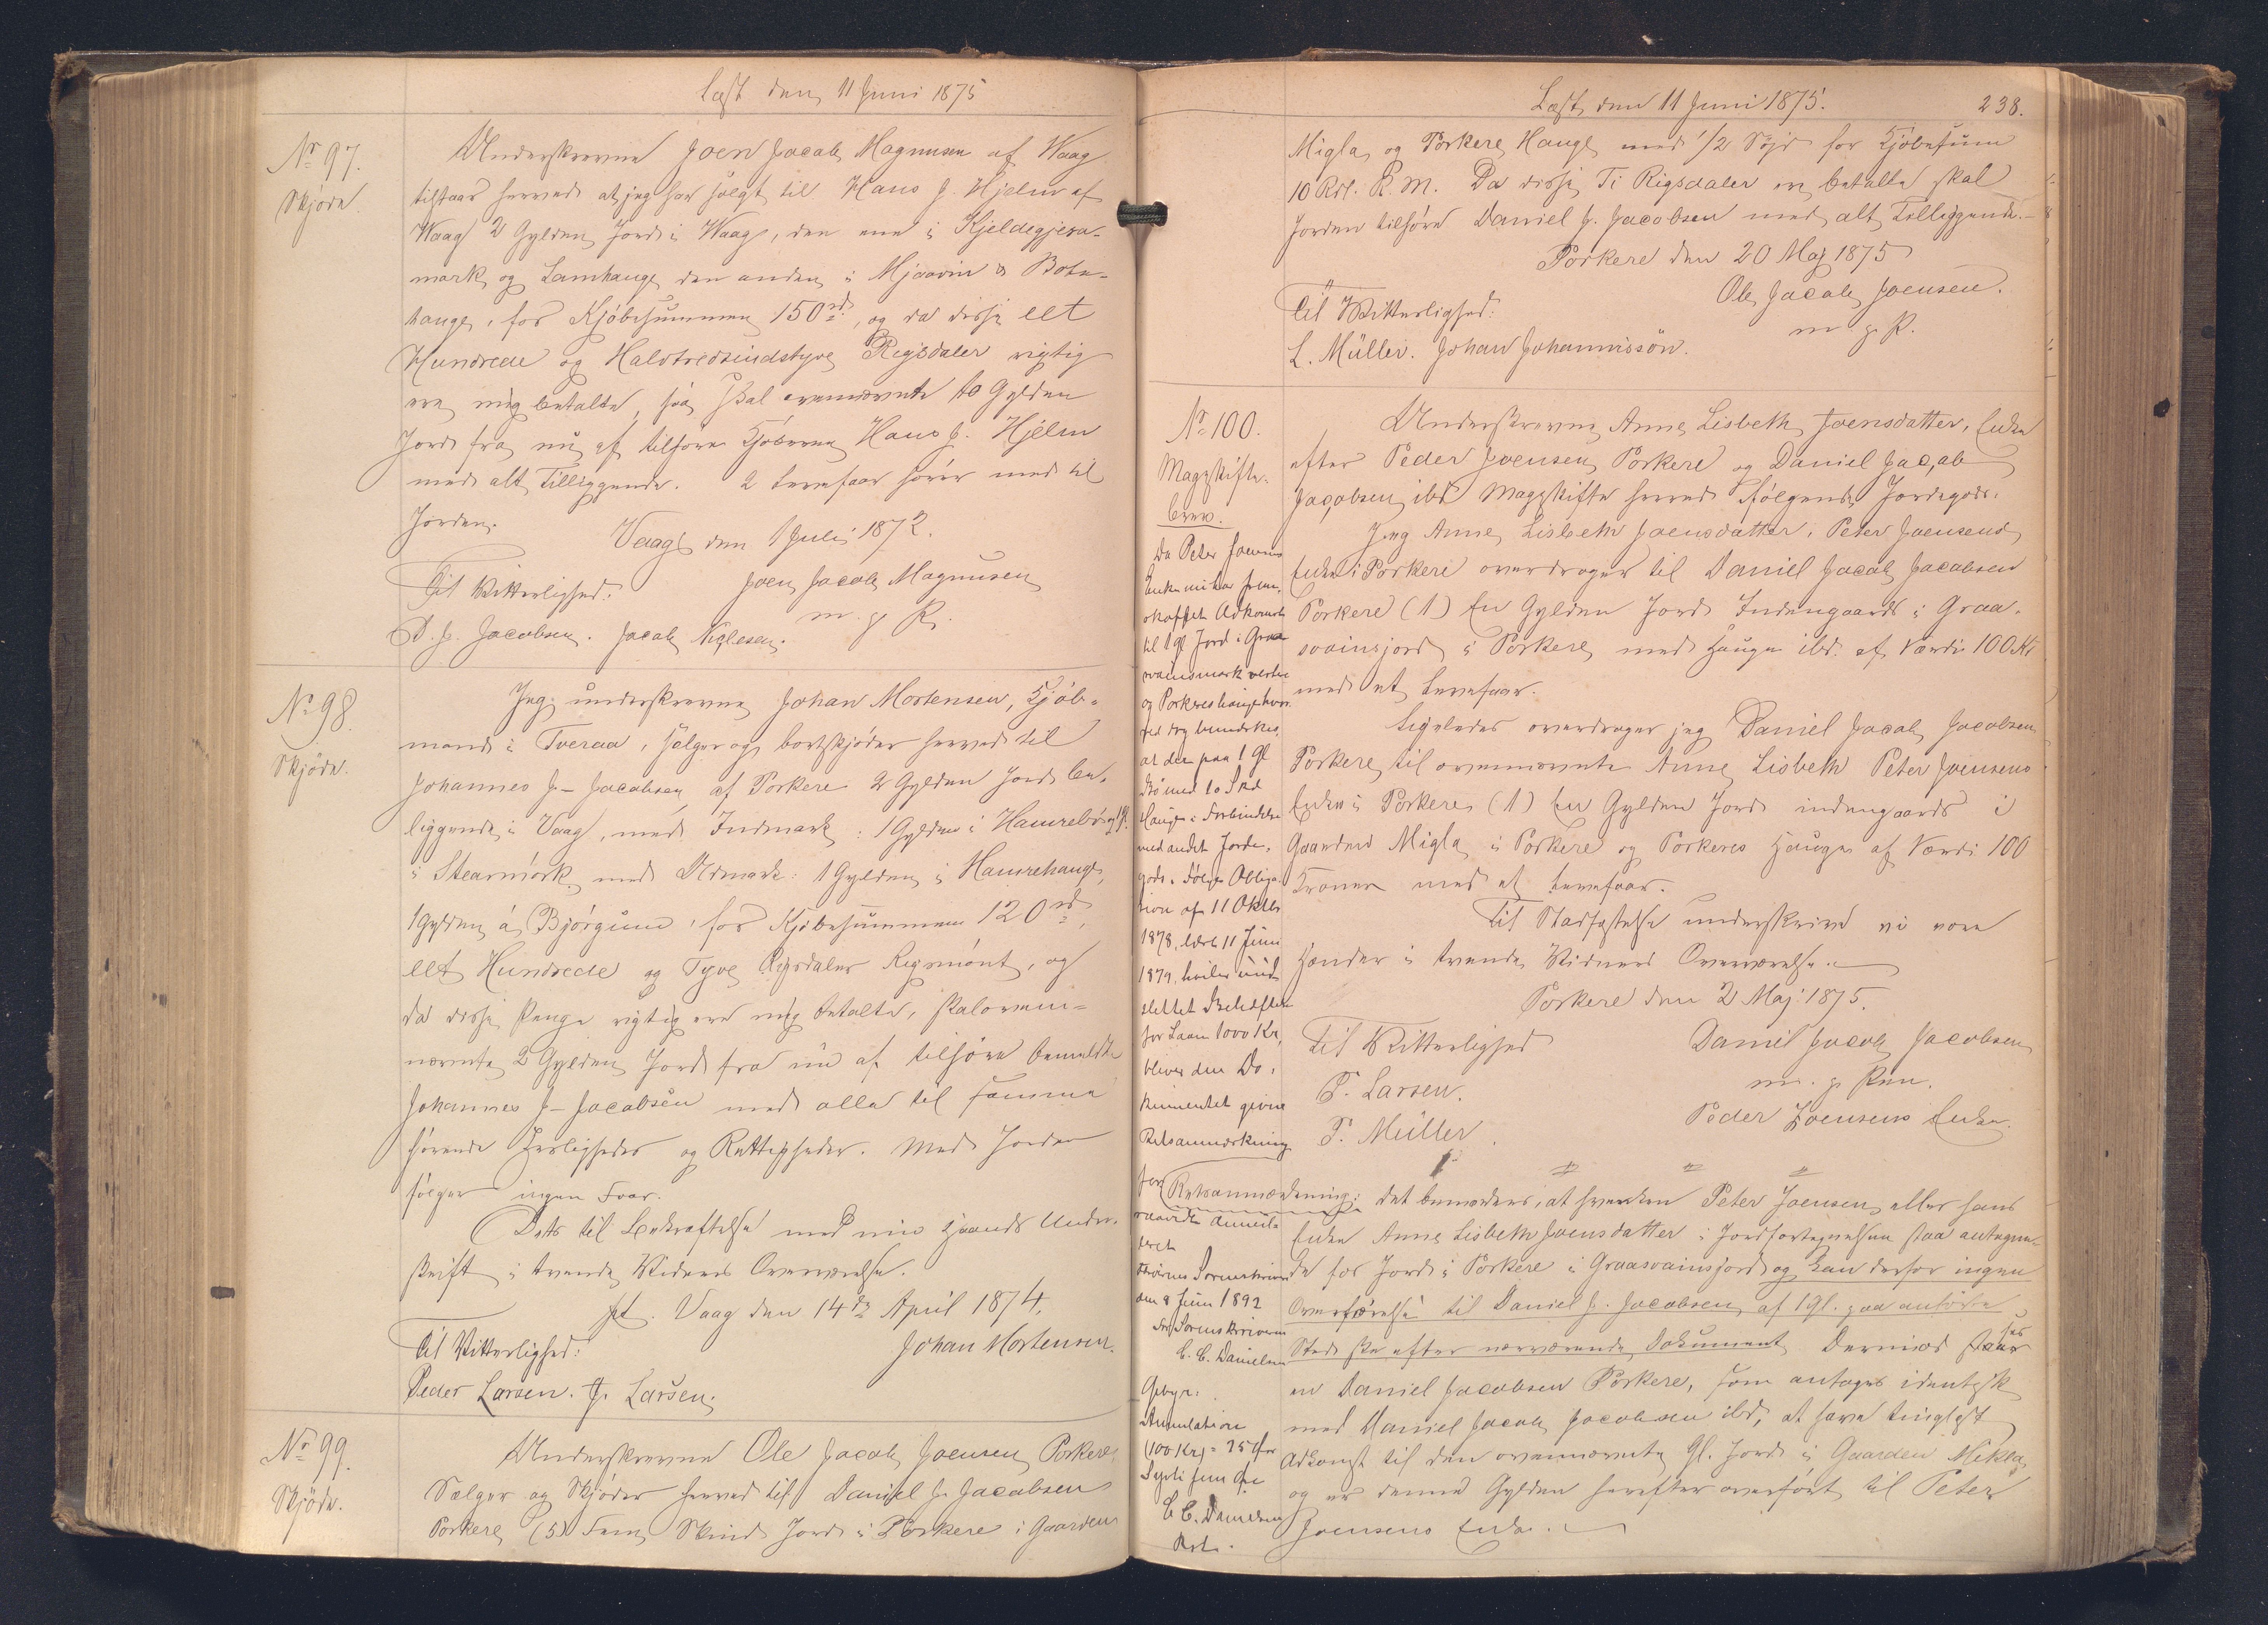 Læst den 11 Juni 1875
No 97.
Skjøde.
Underskrevne Joen Jacob Magnusen af Waag
tilstaar herved at jeg har solgt til Hans J. Hjelm af
Waag 2 Gylden Jord i Waag, den ene i Kjeldegjera-
mark og Lamhauge den anden i Mjaavin & Botn-
hauge, for Kjøbesummen 150 rd, og da disse eet
Hundrede og Halvtredsindstyve Rigsdaler rigtig
ere mig betalte, saa skal ovennævnte to Gylden
Jord fra nu af tilhøre Kjøberen Hans J. Hjelm
med alt Tilliggende. 2 Levefaar hører med til
Jorden.
Vaag den 1 Juli 1872.
Joen Jacob Magnusen
m. g. P.
Til Vitterlighed:
D. J. Jacobsen. Jacob Niclesen.
No 98
Skjøde.
Jeg underskrevne Johan Mortensen, Kjøb-
mand i Tveraa, sælger og bortskjøder herved til
Johannes J- Jacobsen af Porkere 2 Gylden Jord be-
liggende i Vaag, med Indmark: 1 Gylden i Hamrebö og 1 gl.
i Stearmörk, med Udmark: 1 Gylden i Hamrehauge,
1 Gylden á Bjørgum, for Kjøbesummen 120 rd,
eet Hundrede og Tyve Rigsdaler Rigsmønt, og
da disse Penge rigtig ere mig betalte, skal oven-
nævnte 2 Gylden Jord fra nu af tilhøre bemeldte
Johannes J- Jacobsen med alle til samme
hørende Herligheder og Rettigheder. Med Jorden
følger ingen Faar.
Dets til Bekræftelse med min Haands Under-
skrift i tvende Vidners Overværelse.
pt. Vaag den 14de April 1874.
Johan Mortensen.
Til Vitterlighed:
Peder Larsen. J. Larsen.
No 99.
Skjøde.
Underskrevne Ole Jacob Joensen Porkere
Sælger og Skjøder herved til Daniel J. Jacobsen
Porkere (5) Fem Skind Jord i Porkere i Gaarden
Læst den 11 Juni 1875.
238.
Migla og Porkere Hauge med 1/2 for Kjøbesum
10 Rdl. R.M. Da disse Ti Rigsdaler ere betalte skal
Jorden tilhøre Daniel J. Jacobsen med alt Tilliggende.
Porkere den 20 Maj 1875
Ole Jacob Joensen.
m. g. P.
Til Vitterlighed:
L. Müller. Johan Johannissön.
No 100.
Mageskifte-
brev.
Underskrevne Anne Lisbeth Joensdatter, Enke
efter Peder Joensen Porkere og Daniel Jacob
Jacobsen ibd Mageskifte herved følgende Jordegods:
Jeg Anne Lisbeth Joensdatter, Peter Joensens
Enke i Porkere overdrager til Daniel Jacob Jacobsen
Porkere (1) En Gylden Jord Indengaards i Graa-
svainsjord i Porkere med Hauge ibd. af Værdi 100 Kr
med et Levefaar.
Ligeledes overdrager jeg Daniel Jacob Jacobsen
Porkere til ovennævnte Anne Lisbeth Peter Joensens
Enke i Porkere (1) En Gylden Jord indengaards i
Gaarden Migla i Porkere og Porkeres Hauge af Værdi 100
Kroner med et Levefaar.
Til Stadfæstelse underskrive vi vore
Hænder i tvende Vidners Overværelse.
Porkere den 2 Maj 1875.
Til Vitterlighed
Daniel Jacob Jacobsen
m. g. Pen.
P. Larsen.
Peder Joensens Enke.
P. Müller.
Da Peter Joensens
Enke ikke har frem-
skaffet Adkomst
til 1 gl Jord i Graa-
svainsmark
og Porkereshauge
bemærkes,
at den paa 1 gl
Bö med to
Hauge i Forbindelse
med andet Jorde-
gods ifølge Obliga-
tion af 11 Oktbr
1878, læst 11 Juni
1879, hviler
slettet
for Laan 1000 Kr,
bliver den Do-
kumentet givne
Retsanmærkning
for
annul-
leret
Færøernes Sorenskriveri
den 8 Juni 1892
Sorenskriveren
C. C. Danielsen
Gebyr:
Annulation
(100 Kr) = 25 Øre
fem Øre
C. C. Danielsen
Retsanmærkning: Det bemærkes, at hverken Peter Joensen eller hans
Enke Anne Lisbeth Joensdatter i Jordfortegnelsen staa antegne-
de for Jord i Porkere i Graasvainsjord og kan derfor ingen
Overførelse til Daniel J. Jacobsen af 1 gl. paa anførte
Sted ske efter nærværende Dokument. Derimod
en Daniel Jacobsen Porkere, som antages identisk
med Daniel Jacob Jacobsen ibd, at have tinglæst
Adkomst til den ovennævnte Gl. Jord i Gaarden Mikla,
og er denne Gylden herefter overført til Peter
Joensens Enke.